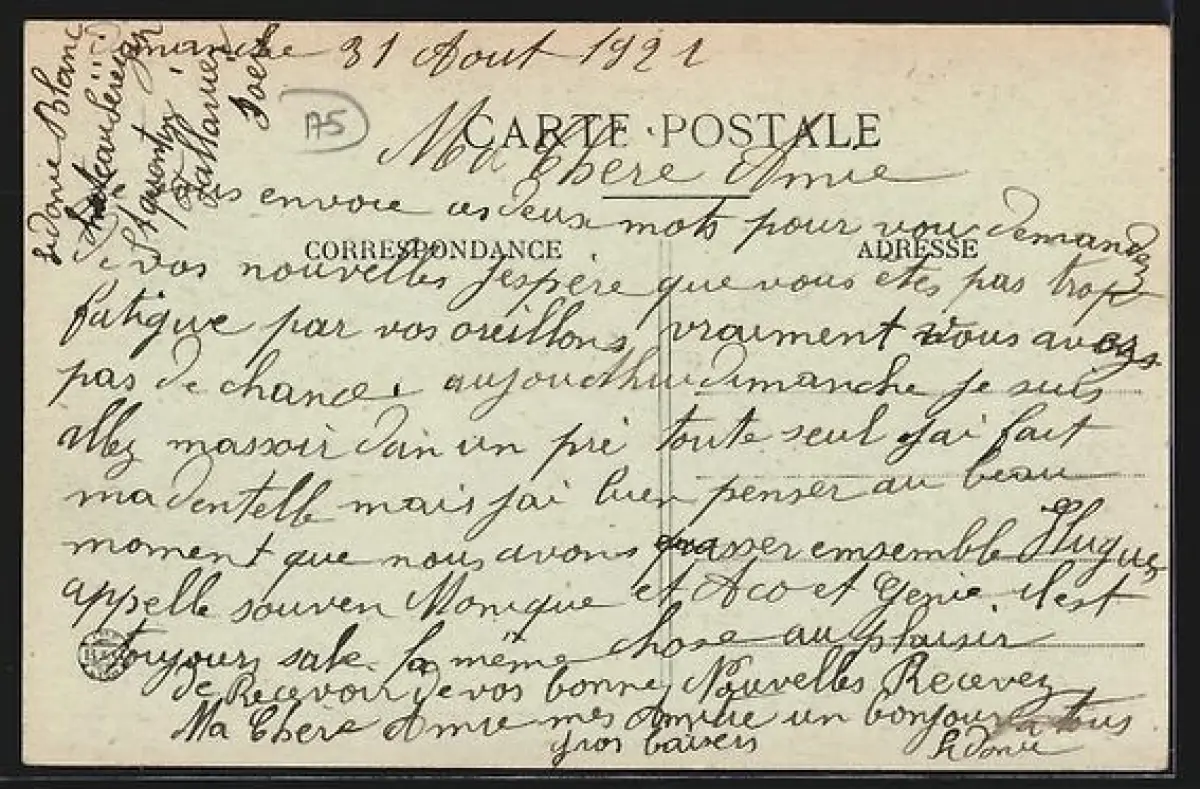 Dimanche 31 Aout 1921
A5
CARTE POSTALE
Ma Chere Amie
envoie ces deux mots pour vou demander
CORRESPONDANCE
ADRESSE
de vos nouvelles Jespère que vous etes pas trop
fatigue par vos oreillons vraiment vous avez
pas de chance. aujourdhui dimanche je suis
allez massoir dan un pré toute seul Jai fait
ma dentelle mais jai bien penser au beau
moment que nous avons passer ensemble Hugues
appelle souven Monique et Aco et Genie il est
toujours sale. la même chose au plaisir
de Recevoir de vos bonne Nouvelles Recevez
Ma Chere Amie mes Amitie un bonjour a tus
gros baisers
Sidonie
Sidonie Blanc
St quentin